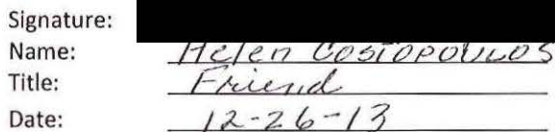 Signature:
Name: Helen Costopoulos
Title: Friend
Date: 12-26-13